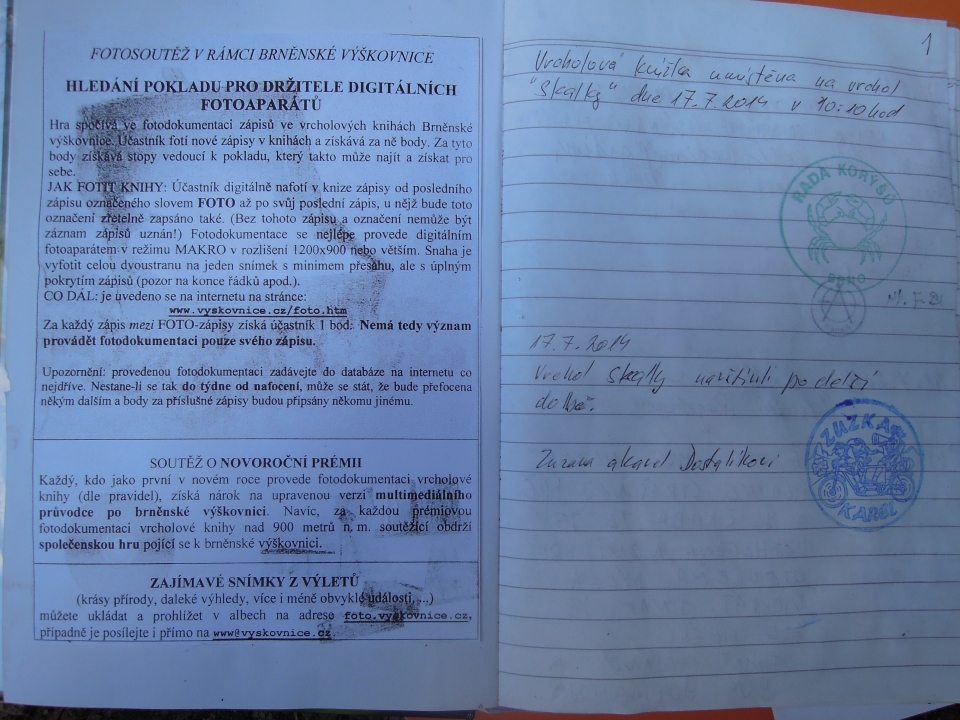 FOTOSOUTĚŽ V RÁMCI BRNĚNSKÉ VÝŠKOVNICE
HLEDÁNÍ POKLADU PRO DRŽITELE DIGITÁLNÍCH
FOTOAPARÁTŮ
Hra spočívá ve fotodokumentaci zápisů ve vrcholových knihách Brněnské
výškovnice. Účastník fotí nové zápisy v knihách a získává za ně body. Za tyto
body získává stopy vedoucí k pokladu, který takto může najít a získat pro
sebe.
JAK FOTIT KNIHY: Účastník digitálně nafotí v knize zápisy od posledního
zápisu označeného slovem FOTO až po svůj poslední zápis, u nějž bude toto
označení zřetelně zapsáno také. (Bez tohoto zápisu a označení nemůže být
záznam zápisů uznán!) Fotodokumentace se nejlépe provede digitálním
fotoaparátem v režimu MAKRO v rozlišení 1200x900 nebo větším. Snaha je
vyfotit celou dvoustranu na jeden snímek s minimem přesahu, ale s úplným
pokrytím zápisů (pozor na konce řádků apod.).
CO DÁL: je uvedeno se na internetu na stránce:
www.vyskovnice.cz/foto.htm
Za každý zápis mezi FOTO-zápisy získá účastník 1 bod. Nemá tedy význam
provádět fotodokumentaci pouze svého zápisu.
Upozornění: provedenou fotodokumentaci zadávejte do databáze na internetu co
nejdříve. Nestane-li se tak do týdne od nafocení, může se stát, že bude přefocena
někým dalším a body za příslušné zápisy budou připsány někomu jinému.
SOUTĚŽ O NOVOROČNÍ PRÉMII
Každý, kdo jako první v novém roce provede fotodokumentaci vrcholové
knihy (dle pravidel), získá nárok na upravenou verzi multimediálního
průvodce po brněnské výškovnici. Navíc, za každou prémiovou
fotodokumentaci vrcholové knihy nad 900 metrů n. m. soutěžící obdrží
společenskou hru pojící se k brněnské výškovnici.
ZAJÍMAVÉ SNÍMKY Z VÝLETŮ
(krásy přírody, daleké výhledy, více i méně obvyklé události, ...)
můžete ukládat a prohlížet v albech na adrese foto.vyskovnice.cz,
případně je posílejte i přímo na www@vyskovnice.cz.
1
Vrcholová knížka umístěna na vrchol
"Skalky" dne 17.7.2014 v 10:10 hod
RADA KORÝŠŮ
BRNO
17.7.2014
Vrchol Skalky navštívili po delší
době.
Zuzana a Karel Dostalíkovi
ZUZKA
KAREL